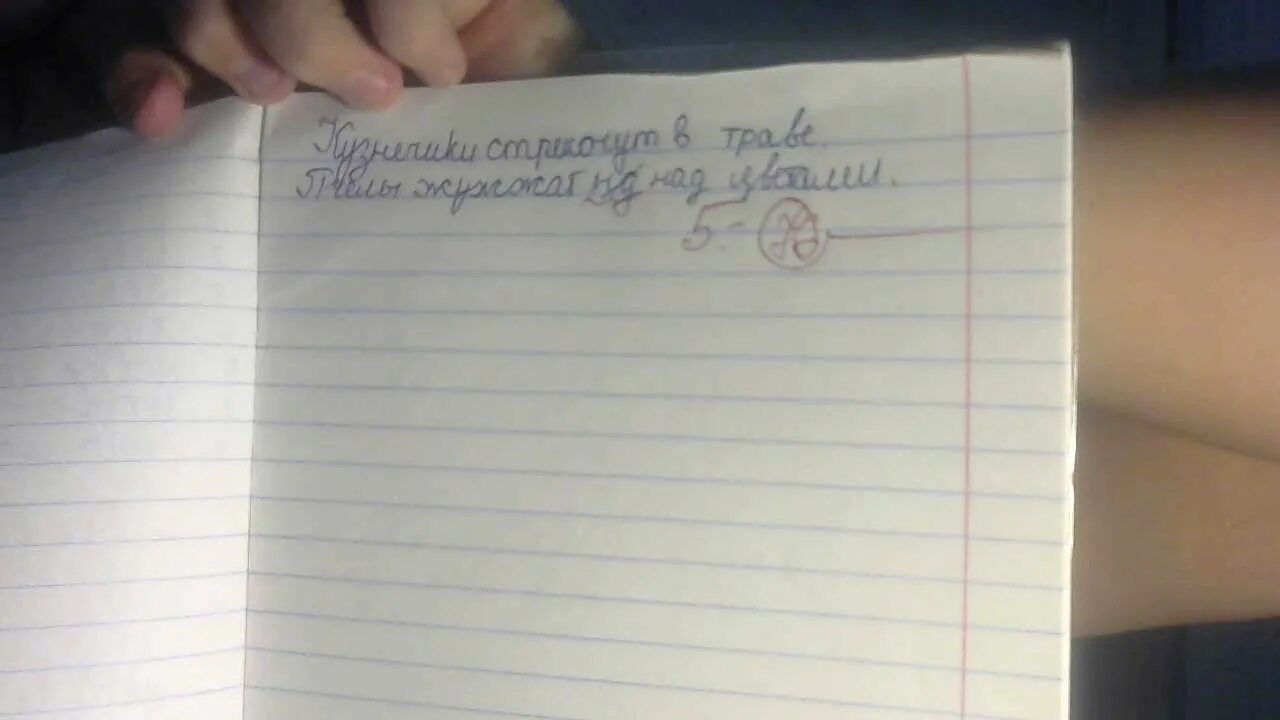 Кузнечики стрекочут в траве.
Пчёлы жужжат над цветами.
5-